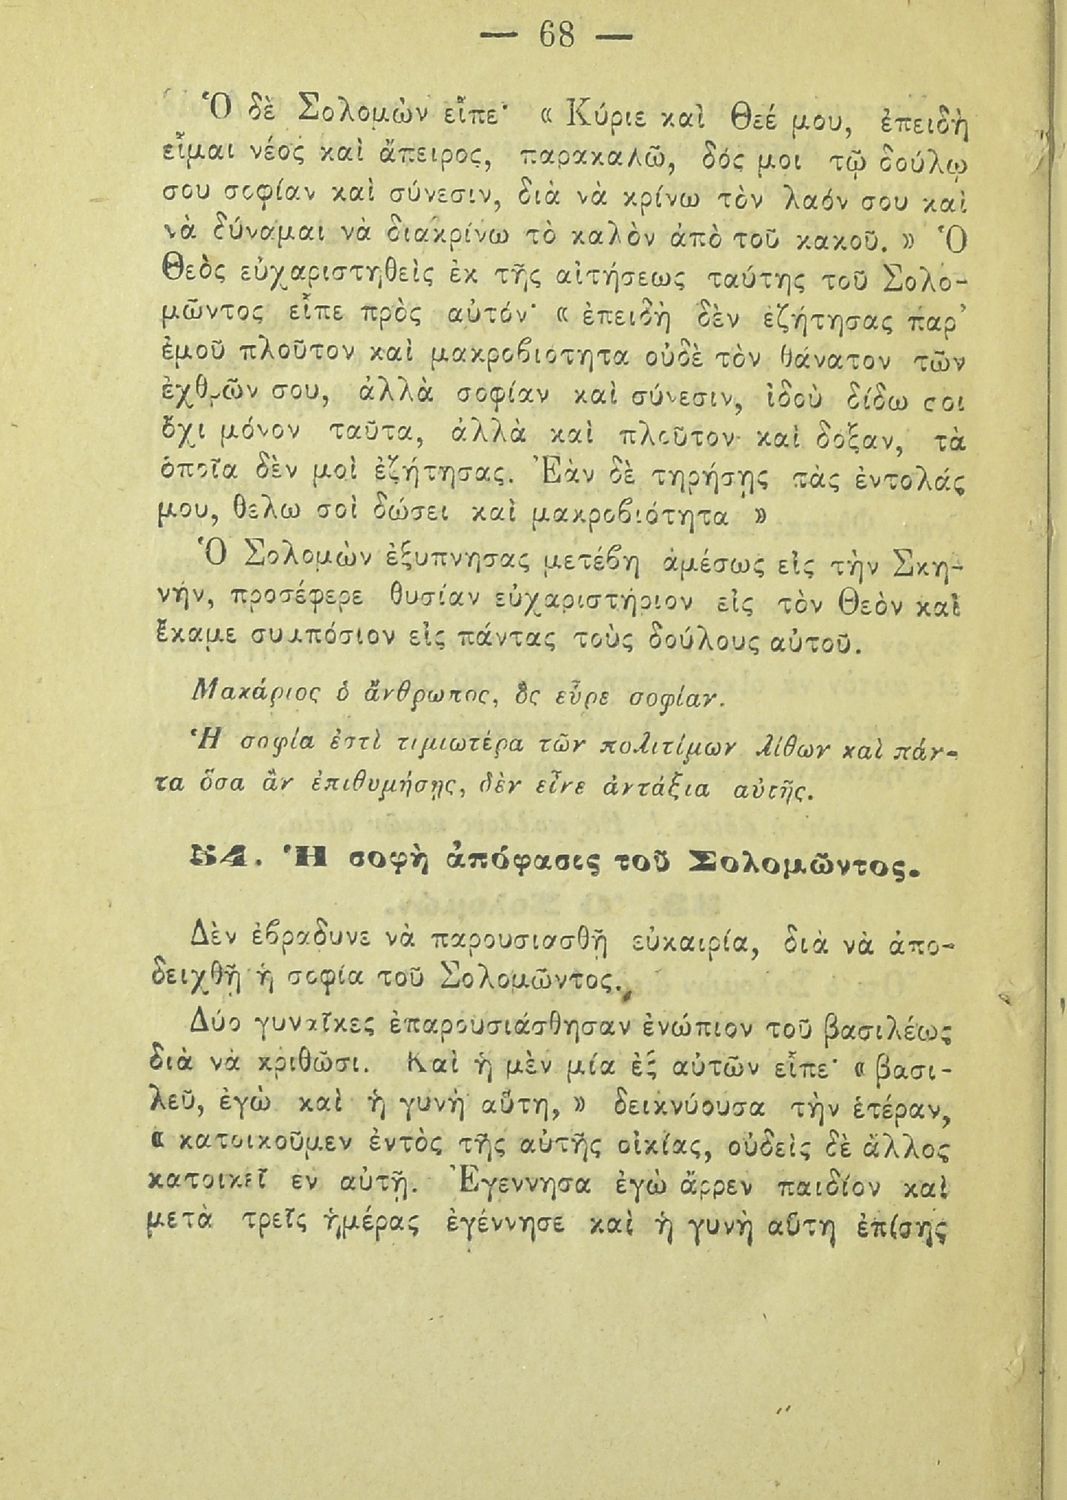 — 68 —
Ὁ δὲ Σολομὼν εἶπε· « Κύριε καὶ Θεέ μου, ἐπειδὴ
εἶμαι νέος καὶ ἄπειρος, παρακαλῶ, δός μοι τῷ δούλῳ
σου σοφίαν καὶ σύνεσιν, διὰ νὰ κρίνω τὸν λαόν σου καὶ
νὰ δύναμαι νὰ διακρίνω τὸ καλὸν ἀπὸ τοῦ κακοῦ. » Ὁ
Θεὸς εὐχαριστηθεὶς ἐκ τῆς αἰτήσεως ταύτης τοῦ Σολο-
μῶντος εἶπε πρὸς αὐτόν· « ἐπειδὴ δὲν ἐζήτησας παρ’
ἐμοῦ πλοῦτον καὶ μακροβιότητα οὐδὲ τὸν θάνατον τῶν
ἐχθρῶν σου, ἀλλὰ σοφίαν καὶ σύνεσιν, ἰδοὺ δίδω σοι
ὄχι μόνον ταῦτα, ἀλλὰ καὶ πλοῦτον καὶ δόξαν, τὰ
ὁποῖα δὲν μοὶ ἐζήτησας. Ἐὰν δὲ τηρήσῃς τὰς ἐντολάς
μου, θελω σοὶ δώσει καὶ μακροβιότητα »
Ὁ Σολομὼν ἐξυπνησας μετέβη ἀμέσως εἰς τὴν Σκη-
νήν, προσέφερε θυσίαν εὐχαριστήριον εἰς τὸν Θεὸν καὶ
ἔκαμε συμπόσιον εἰς πάντας τοὺς δούλους αὐτοῦ.
Μακάριος ὁ ἄνθρωπος, ὃς εὗρε σοφίαν.
Ἡ σοφία ἐστὶ τιμιωτέρα τῶν πολιτίμων λίθων καὶ πάν-
τα ὅσα ἂν ἐπιθυμήσῃς, δὲν εἶνε ἀντάξια αὐτῆς.
54. Ἡ σοφὴ ἀπόφασις τοῦ Σολομῶντος.
Δὲν ἐβραδυνε νὰ παρουσιασθῇ εὐκαιρία, διὰ νὰ ἀπο-
δειχθῇ ἡ σοφία τοῦ Σολομῶντος.
Δύο γυναῖκες ἐπαρουσιάσθησαν ἐνώπιον τοῦ βασιλέως
διὰ νὰ κριθῶσι. Καὶ ἡ μὲν μία ἐξ αὐτῶν εἶπε· « βασι-
λεῦ, ἐγὼ καὶ ἡ γυνὴ αὕτη, » δεικνύουσα τὴν ἑτέραν,
« κατοικοῦμεν ἐντὸς τῆς αὐτῆς οἰκίας, οὐδεὶς δὲ ἄλλος
κατοικεῖ εν αὐτῇ. Ἐγεννησα ἐγὼ ἄρρεν παιδίον καὶ
μετὰ τρεῖς ἡμέρας ἐγέννησε καὶ ἡ γυνὴ αὕτη ἐπίσης